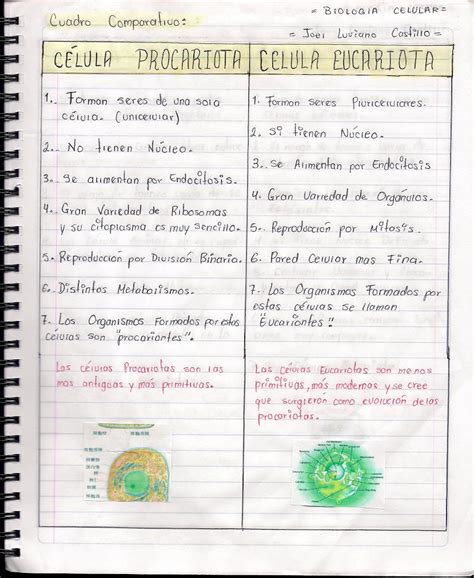 = BIOLOGIA CELULAR=
Cuadro Comparativo:
= Joel Luviano Castillo =
CÉLULA PROCARIOTA
1. Forman seres de una sola
célula. (unicelular)
2. No tienen Núcleo.
3. Se alimentan por Endocitosis.
4. Gran Variedad de Ribosomas
y su citoplasma es muy sencillo.
5. Reproducción por División Binaria.
6. Distintos Metabolismos.
7. Los Organismos Formados por estas
células son "procariontes".
Las células Procariotas son las
mas antiguas y más primitivas.
CELULA EUCARIOTA
1. Forman seres Pluricelulares.
2. Si tienen Núcleo.
3. Se Alimentan por Endocitosis
4. Gran Variedad de Orgánulos.
5. Reproducción por Mitosis.
6. Pared Celular mas Fina.
7. Los Organismos Formados por
estas células se llaman
"Eucariontes".
Las Células Eucariotas son menos
primitivas, más modernas y se cree
que surgieron como evolución de las
procariotas.